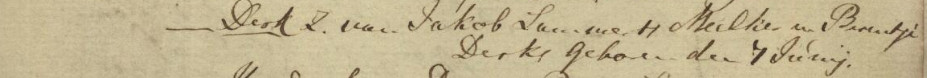 — Derk Z. van Jakob Lammerts Mulder en Berentje
Derks geboren den 7 Junij.